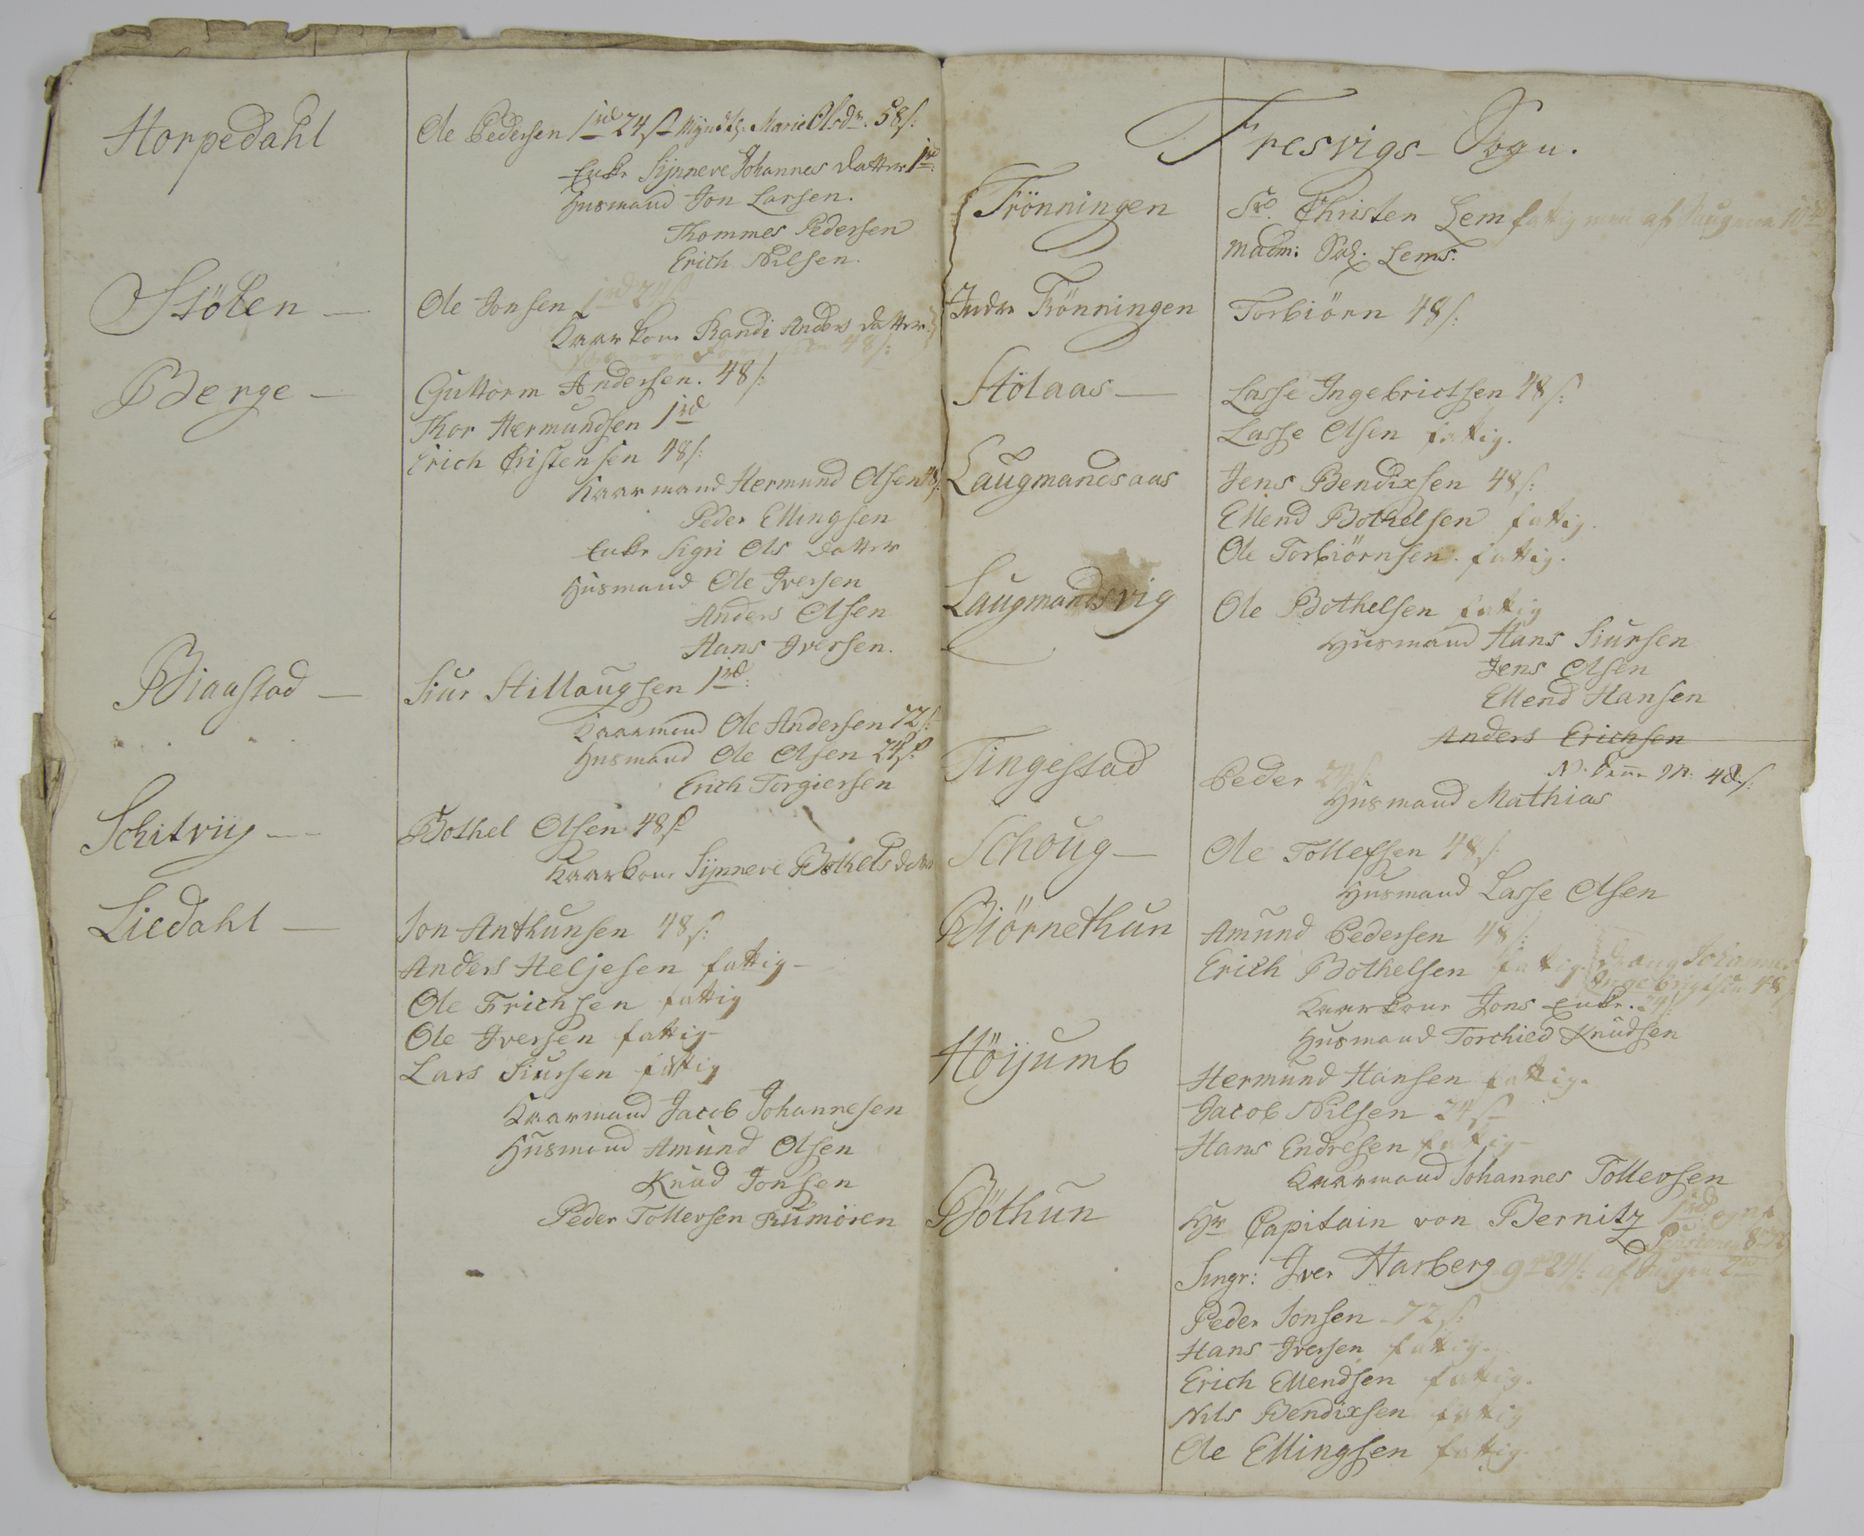 Horpedahl
Ole Pedersen 1rd 24 s Myndtl. Marie Olsdr. 58 s:
Enke Synneve Johannes Datter 1rd:
Husmand Jon Larsen.
Thommes Pedersen
Erich Nilsen.
Stölen —
Ole Jonsen 1rd 24 s
Kaarkone Randi Anders Datter
48 s:
Berge —
Guttorm Andersen. 48 s:
Thor Hermundsen 1rd
Erich Christensen 48 s:
Kaarmand Hermund Olsen 48 s:
Peder Ellingsen
Enke Sigri Ols Datter
Husmand Ole Iversen
Anders Olsen
Hans Iversen.
Biaastad —
Siur Stillaugsen 1rd:
Kaarmand Ole Andersen 72 s:
Husmand Ole Olsen 24 s
Erich Torgiersen
Schitvig —
Bothel Olsen 48 s
Kaarkone Synneve Bothels dattr
Liedahl —
Jon Anthunsen 48 s:
Anders Heljesen fattig —
Ole Erichsen fattig
Ole Iversen fattig —
Lars Siursen fattig
Kaarmand Jacob Johannesen
Husmand Amund Olsen
Knud Jonsen
Peder Tollevsen Rumören
Fresvigs — Sogn.
Frönningen
Sr. Christen Lem fattig
Madm: Sal. Lems.
Indre Frönningen
Torbiörn 48 s:
Stölaas —
Lasse Ingebrictsen 48 s:
Lasse Olsen fattig.
Laugmandsaas
Jens Bendixsen 48 s:
Ellend Bothelsen fattig.
Ole Torbiörnsen. fattig.
Laugmandsvig
Ole Bothelsen fattig
Husmand Hans Siursen
Jens Olsen
Ellend Hansen
Anders Erichsen
Tingestad
48 s:
Peder 24 s:
Husmand Mathias
Schoug —
Ole Tollefsen 48 s:
Husmand Lasse Olsen
Biörnethun
Amund Pedersen 48 s:
Erich Bothelsen fattig. Draug Johannes
Ingebrigtsen 48 s
Kaarkone Jons Enke. 24 s:
Husmand Torchied Knudsen
Höijumb
Hermund Hansen fattig.
Jacob Nilsen 24 s
Hans Endresen fattig —
Kaarmand Johannes Tollevsen
Böthun
Hr Capitain von Bernitz 1rd egne
Pensioner 8rd
Singr: Iver Harberg 9rd 24 s:
Peder Jonsen 72 s:
Hans Iversen fattig.
Erich Ellendsen fattig.
Nils Bendixsen fattig
Ole Ellingsen fattig.